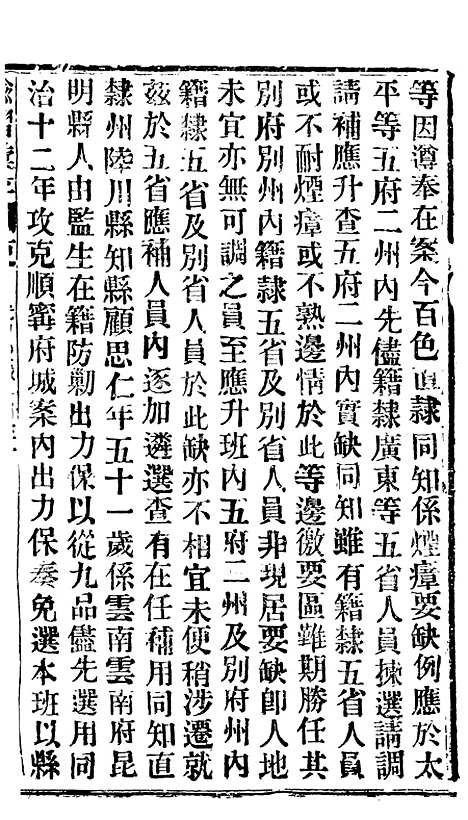 等因遵奉在案今百色直隸同知係煙瘴要缺例應於太
平等五府二州內先儘籍隸廣東等五省人員揀選請調
請補應升查五府二州內實缺同知雖有籍隸五省人員
或不耐煙瘴或不熟邊情於此等邊徼要區難期勝任其
別府別州內籍隸五省及別省人員非現居要缺卽人地
未宜亦無可調之員至應升班內五府二州及別府州內
籍隸五省及別省人員於此缺亦不相宜未便稍涉遷就
茲於五省應補人員內逐加遴選查有在任補用同知直
隸州陸川縣知縣顧思仁年五十一歲係雲南雲南府昆
明縣人由監生在籍防勦出力保以從九品儘先選用同
治十二年攻克順寧府城案內出力保奏免選本班以縣